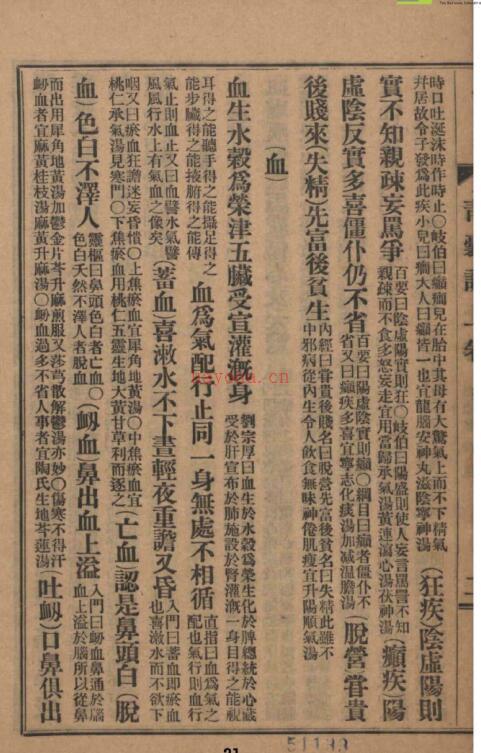 時口吐涎沫時作時止○岐伯曰癲癇兒在胎中其母有大驚氣上而不下精氣
并居故令子發爲此疾小兒曰癇大人曰癲皆一也宜龍腦安神丸滋陰寧神湯
(狂疾)陰虛陽則
實不知親疎妄罵爭
百要曰陰虛陽實則狂○岐伯曰陽盛則使人妄言罵詈不知
親疎而不食多怒妄走宜用當歸承氣湯黃連瀉心湯茯神湯
(癲疾)陽
虛陰反實多喜僵仆仍不省
百要曰陽虛陰實則癲○綱目曰癲者僵仆不
省又曰癲疾多喜宜寧志化痰湯加減溫膽湯
(脫營)嘗貴
後賤來(失精)先富後貧生
內經曰嘗貴後賤名曰脫營先富後貧名曰失精此雖不
中邪病從內生令人飲食無味神倦肌瘦宜升陽順氣湯
(血)
血生水穀爲榮津五臟受宣灌漑身
劉宗厚曰血生於水穀爲榮生化於脾總統於心藏
受於肝宣布於肺施設於腎灌漑一身目得之能視
耳得之能聽手得之能攝足得之
能步臟得之能掖腑得之能傳
血爲氣配行止同一身無處不相循
直指曰血爲氣之
配也氣行則血行
氣止則血止又曰血譬水氣譬
風風行水上有氣血之像矣
(蓄血)喜漱水不下晝輕夜重譫又昏
入門曰蓄血卽瘀血
也喜漱水而不欲下
咽又曰瘀血狂譫迷妄昏憒○上焦瘀血宜犀角地黃湯○中焦瘀血宜
桃仁承氣湯見寒門○下焦瘀血用桃仁五靈生地大黃甘草利而逐之
(亡血)認是鼻頭白(脫
血)色白不澤人
靈樞曰鼻頭色白者亡血○
色白夭然不澤人者脫血
(衂血)鼻出血上溢
入門曰衂血鼻通於腦
血上溢於腦所以從鼻
而出用犀角地黃湯加鬱金片芩升麻煎服又莎芎散解鬱湯亦妙○傷寒不得汗
衂血者宜麻黃桂枝湯麻黃升麻湯○衂血過多不省人事者宜陶氏生地芩蓮湯
(吐衂)口鼻俱出
21